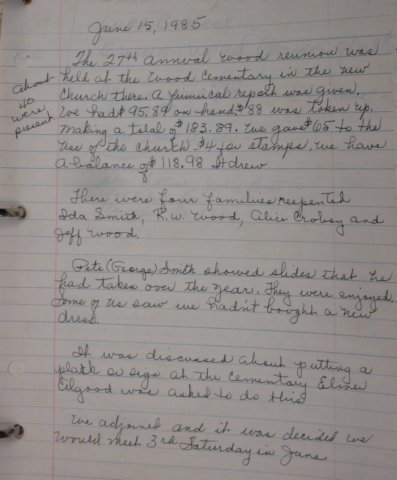 June 15, 1985
The 27th Annual Wood reunion was
held at the Wood Cementary in the new
Church there. A finincal report was given.
We had $95.89 on hand. $88 was taken up.
Making a total of $183.89. We gave $65 to the
use of the church $4 for stamps. We have
a balance of $118.98 It drew
About
40
were
present
There were four families respented
Ida Smith, R.W. Wood, Alice Crobsy and
Jeff Wood.
Pete (George) Smith showed slides that he
had taken over the year. They were enjoyed.
Some of us saw we hadn't bought a new
dress.
It was discussed about putting a
plack or sign at the Cementary Elmer
was asked to do this
We adjurned and it was decided we
would meet 3rd Saturday in June